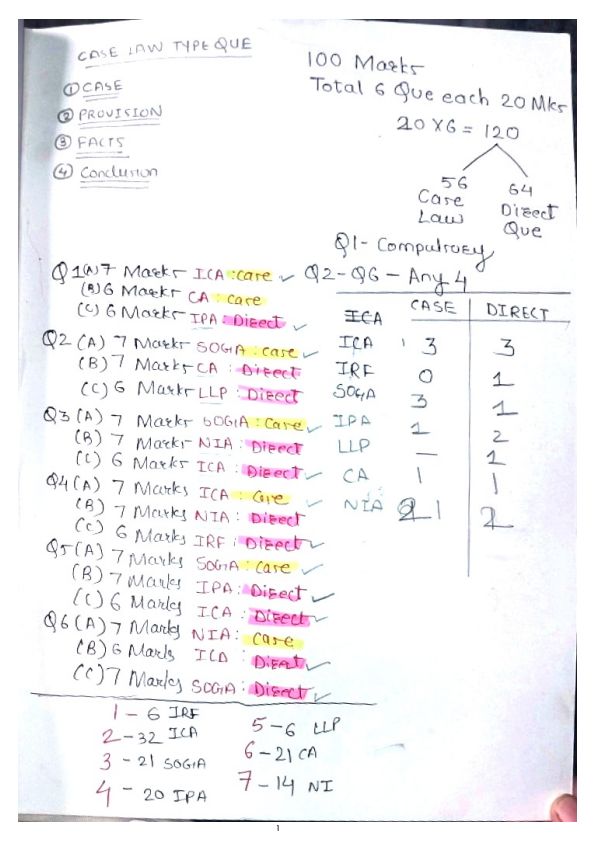 CASE LAW TYPE QUE
① CASE
② PROVISION
③ FACTS
④ Conclusion
100 Marks
Total 6 Que each 20 Mks
20 X6 = 120
56 Case Law
64 Direct Que
Q1- Compulsory
Q2-Q6 - Any 4
Q1(A) 7 Marks ICA : case ✓
(B) 6 Marks CA : case
(C) 6 Marks IPA : Direct ✓
Q2 (A) 7 Marks SOGA : case ✓
(B) 7 Marks CA : Direct
(C) 6 Marks LLP : Direct
Q3 (A) 7 Marks SOGA : Case ✓
(B) 7 Marks NIA : Direct
(C) 6 Marks ICA : Direct ✓
Q4 (A) 7 Marks ICA : Case ✓
(B) 7 Marks NIA : Direct
(C) 6 Marks IRF : Direct ✓
Q5 (A) 7 Marks SOGA : case ✓
(B) 7 Marks IPA : Direct ✓
(C) 6 Marks ICA : Direct ✓
Q6 (A) 7 Marks NIA : case
(B) 6 Marks ICA : Direct ✓
(C) 7 Marks SOGA : Direct ✓
CASE DIRECT
ICA
ICA 3 3
IRF 0 1
SOGA 3 1
IPA 1 2
LLP - 1
CA 1 1
NIA 2 1 2
1 - 6 IRF
2 - 32 ICA
3 - 21 SOGA
4 - 20 IPA
5 - 6 LLP
6 - 21 CA
7 - 14 NI
1